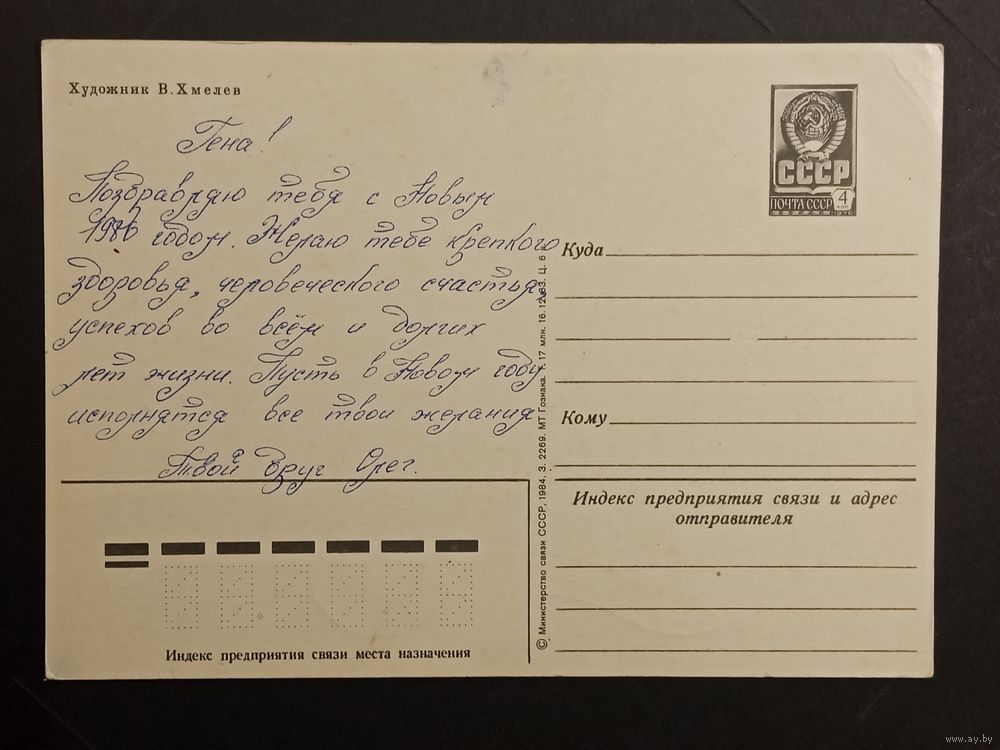 Художник В. Хмелев
Гена!
Поздравляю тебя с Новым
1986 годом. Желаю тебе крепкого
здоровья, человеческого счастья,
успехов во всём и долгих
лет жизни. Пусть в Новом году
исполнятся все твои желания
Твой друг Олег.
СССР
ПОЧТА СССР 4 КОП
Куда
Кому
© Министерство связи СССР, 1984. З. 2269. МТ Гознака. т. 17 млн. 16.12.83. Ц. 6
Индекс предприятия связи и адрес
отправителя
Индекс предприятия связи места назначения
www.ay.by